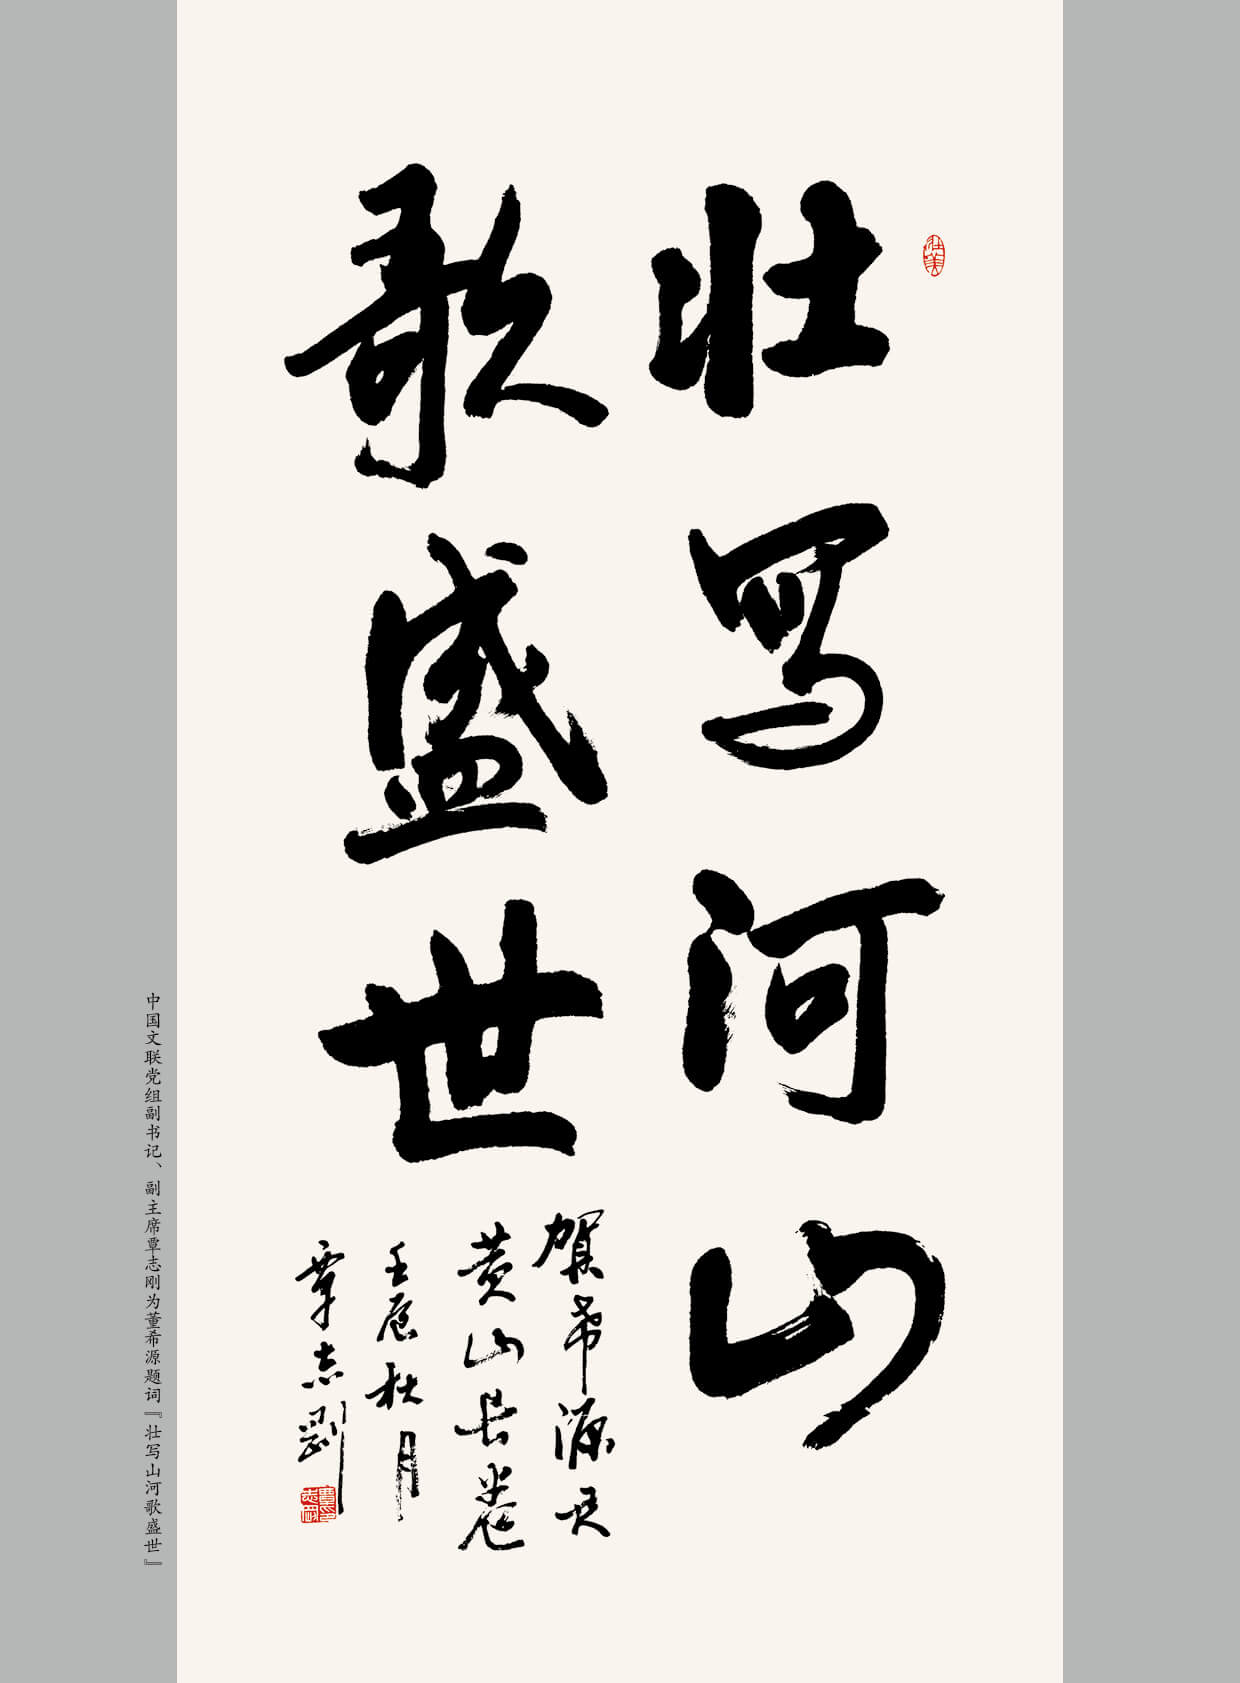 壮写河山
歌盛世
贺希源君
黄山长卷
壬辰秋月
覃志刚
壮美
中国文联党组副书记、副主席覃志刚为董希源题词『壮写山河歌盛世』